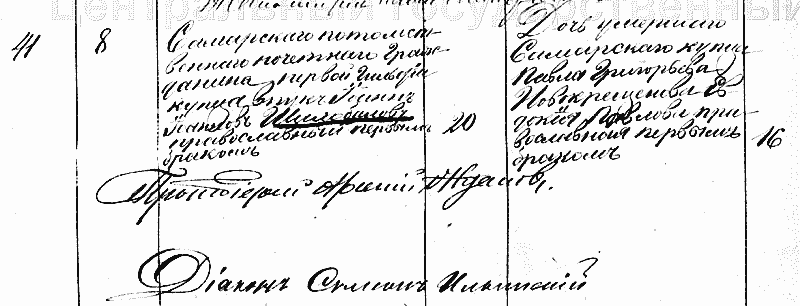 Центральный государственный
41 8
Самарскаго потомст-
веннаго почетнаго Граж-
данина первой гильдіи
купца внукъ
Павловъ Шихобаловъ
православный первымъ
бракомъ
20
Дочь умершаго
Самарскаго купца
Павла Григорьева
Новокрещенова Ев-
докія Павлова пра-
вославная первымъ
бракомъ
16
Протоіерей Жданов
Діаконъ Симеонъ